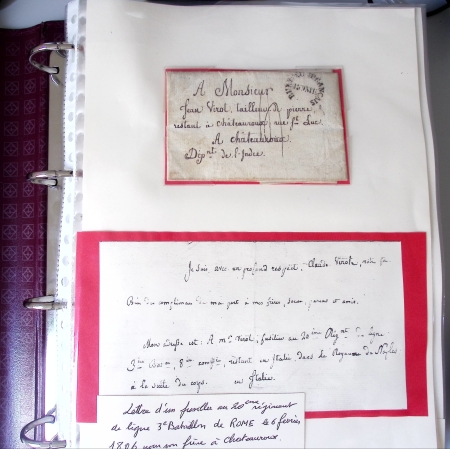 A Monsieur
Jean Virot, tailleur de pierre
restant à châteauroux, rue St Luc
A châteauroux
Dépnt de l'Indre.
Je suis avec un profond respect. Claude Virot,
Bien des compliments de ma part à mes frères, soeur, parens et amis.
Mon adresse est : A mr Virot, fusilier au 20ième Régnt de ligne
3ème Baton, 8ième compie, restant en Italie dans le Royaume de Naples
à la suite du corps. en Italie.
Lettre d'un fusilier au 20ème régiment
de ligne 3e Bataillon de ROME le 6 février
1806 pour son frère à chateauroux.